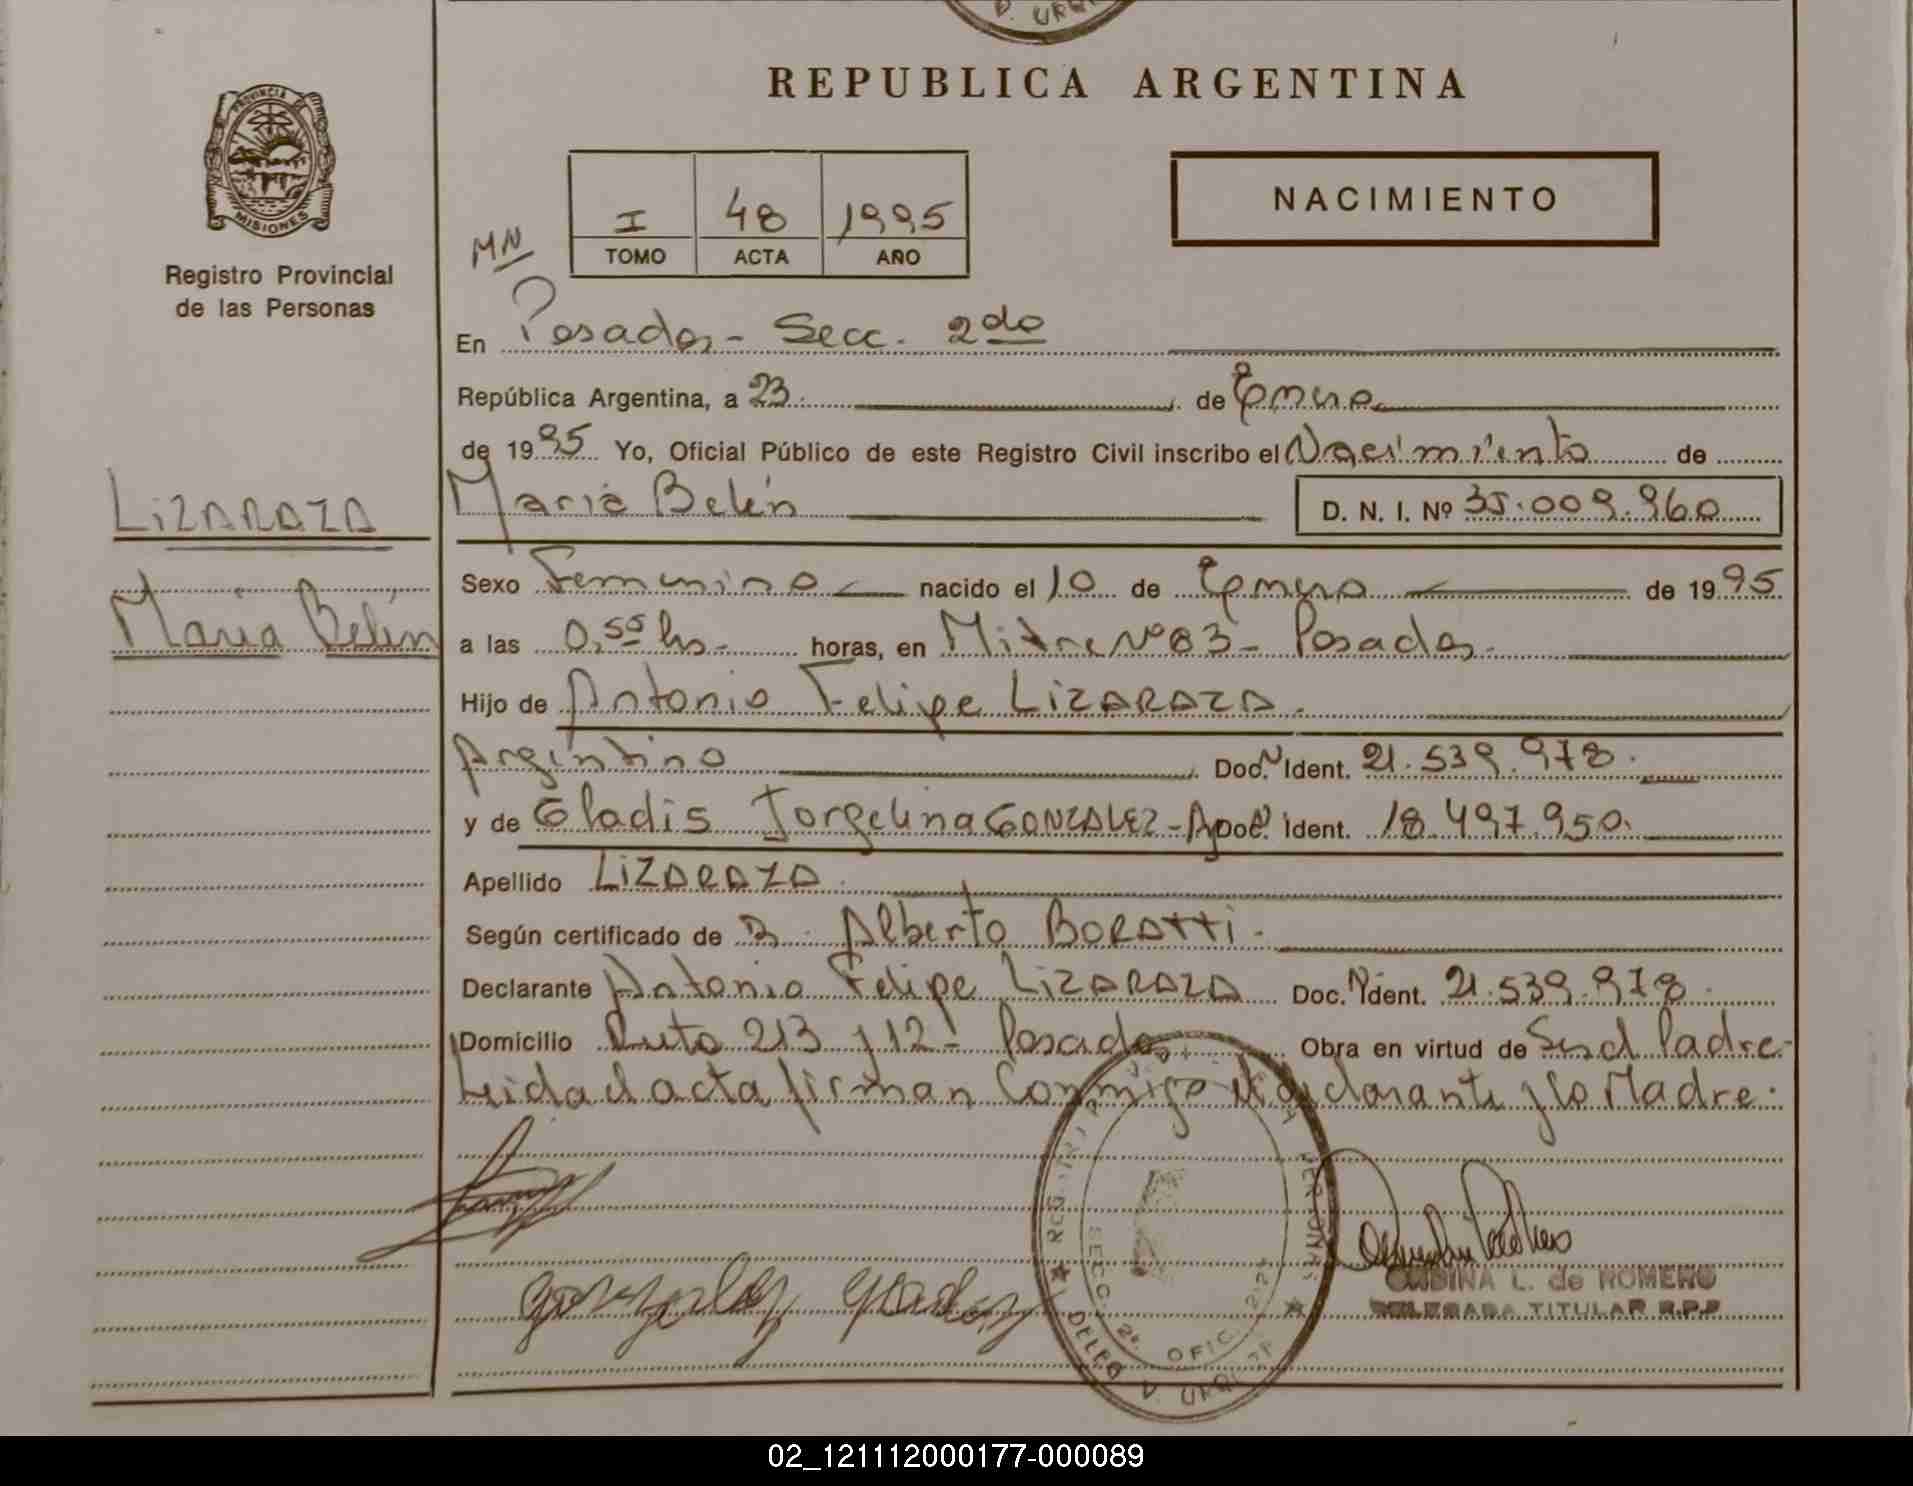 D. URQU
REPUBLICA ARGENTINA
PROVINCIA DE
MISIONES
Registro Provincial
de las Personas
NACIMIENTO
I 48 1995
TOMO ACTA AÑO
MN
En Posadas - Secc. 2do
República Argentina, a 23 de Enero
de 1995 Yo, Oficial Público de este Registro Civil inscribo el Nacimiento de
LIZARAZA
María Belén D. N. I. Nº 35.009.960
Sexo Femenino nacido el 10 de Enero de 1995
María Belén
a las 0,55 hs. horas, en Mitre Nº 83 - Posadas.
Hijo de Antonio Felipe LIZARAZA.
Argentino Doc. N Ident. 21.539.978.
y de Gladis Jorgelina GONZALEZ - Doc. Ident. 18.497.950.
Apellido LIZARAZA.
Según certificado de Alberto BORATTI.
Declarante Antonio Felipe LIZARAZA Doc. N Ident. 21.539.978.
Domicilio Ruta 213 y 12 - Posadas Obra en virtud de Ser el Padre.
Leida el acta firman Conmigo el declarante y la Madre.
SECC. 2ª OFIC.
DELFO D. URQU
gonzalez gladis
ONDINA L. de ROMERO
DELEGADA TITULAR R.P.P.
02_121112000177-000089